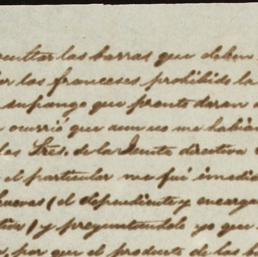 ocultar las barras que deben
por los franceses prohibido la
supongo que pronto daran
ocurrió que aun no me habian
los Sres. de la Junta directiva
el particular me fué inmedia
buenos (el dependiente y encarga
tiva) y preguntandole yo que
, por que el producto de las b